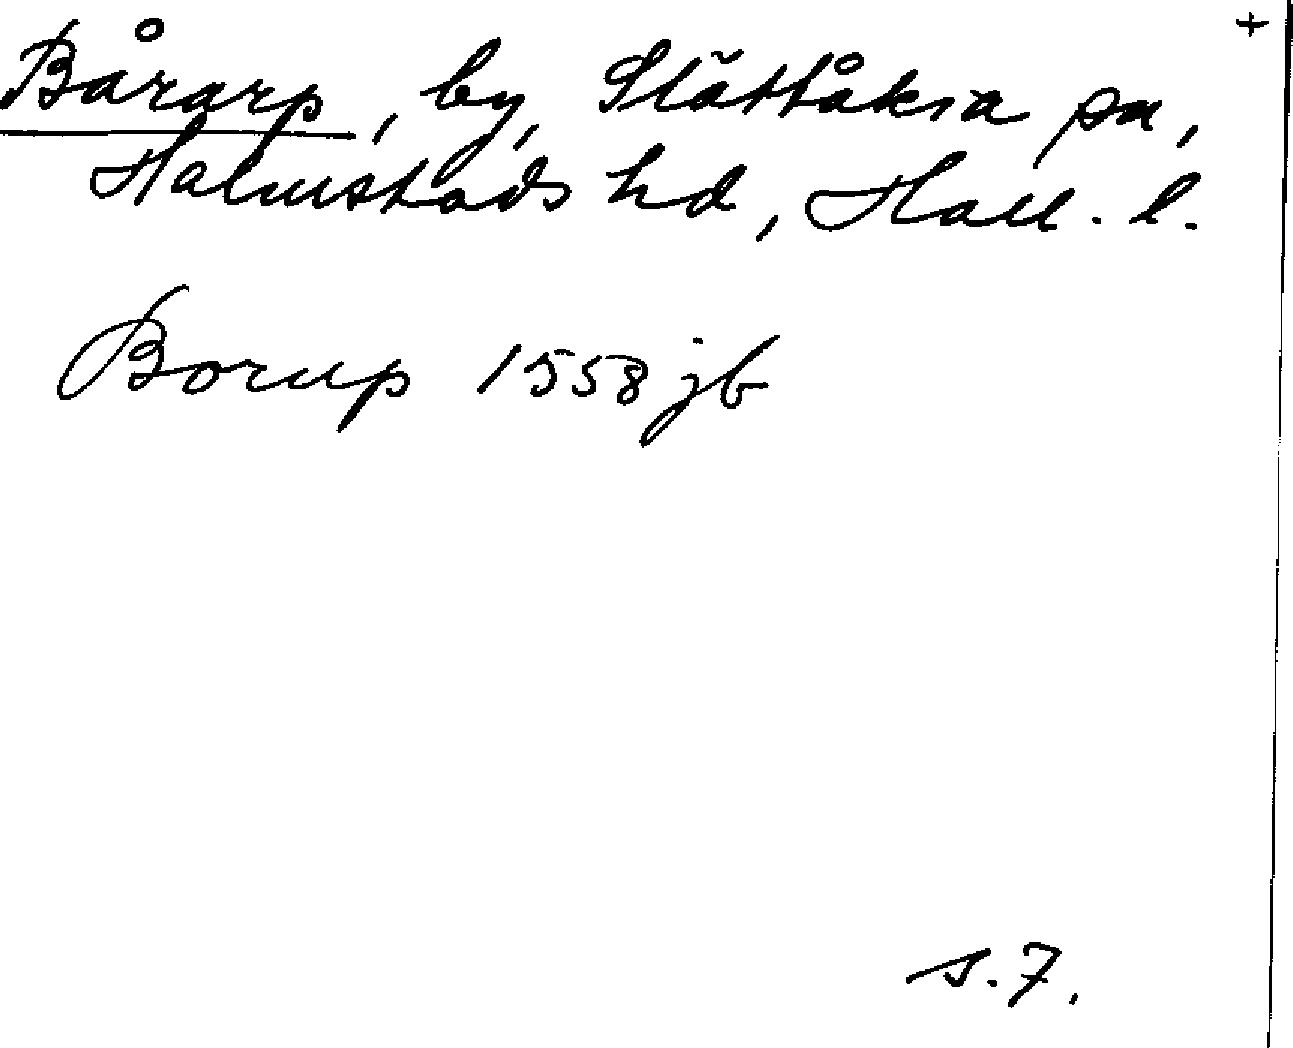 +
Bårarp, by, Slättåkra sn,
Halmstads hd, Hall. l.
Borup 1558 jb
s. 7.